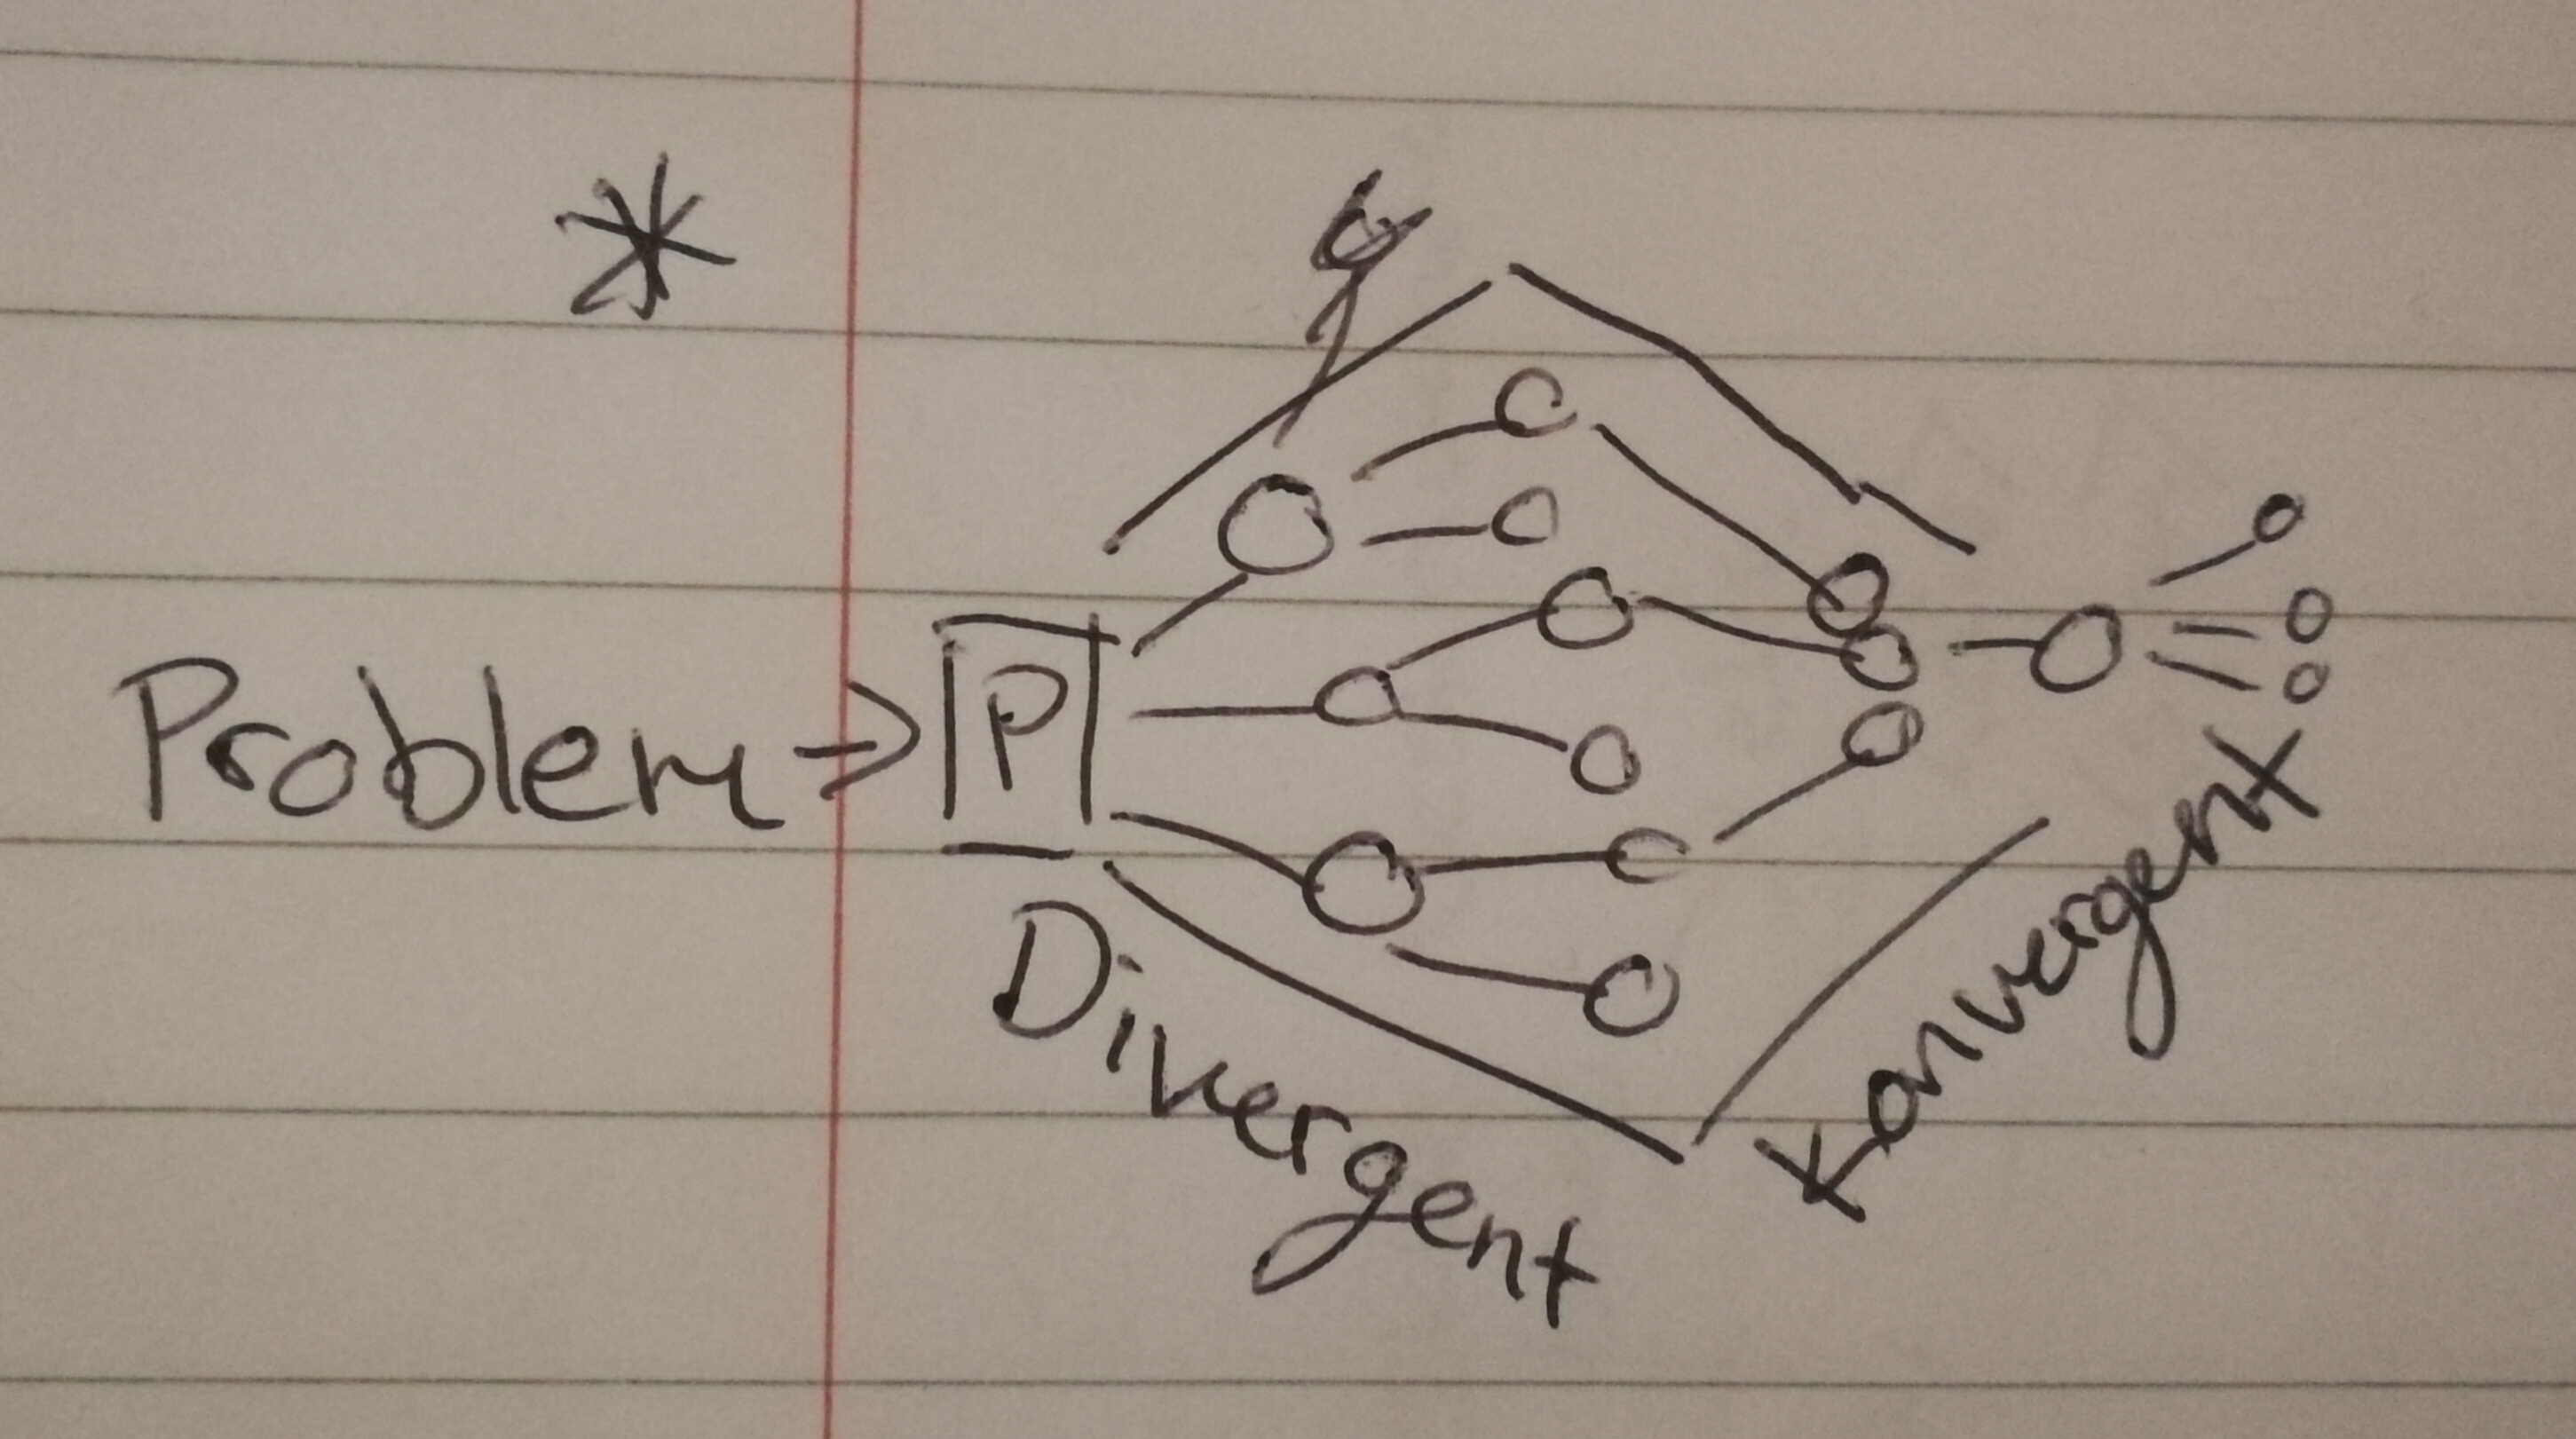 Problem => P
Divergent
Konvergent